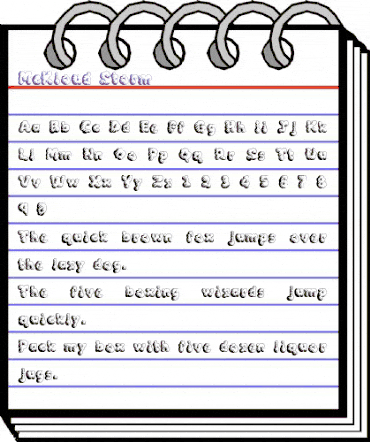 McKloud Storm
Aa Bb Cc Dd Ee Ff Gg Hh Ii Jj Kk
Ll Mm Nn Oo Pp Qq Rr Ss Tt Uu
Vv Ww Xx Yy Zz 1 2 3 4 5 6 7 8
9 0
The quick brown fox jumps over
the lazy dog.
The five boxing wizards jump
quickly.
Pack my box with five dozen liquor
jugs.